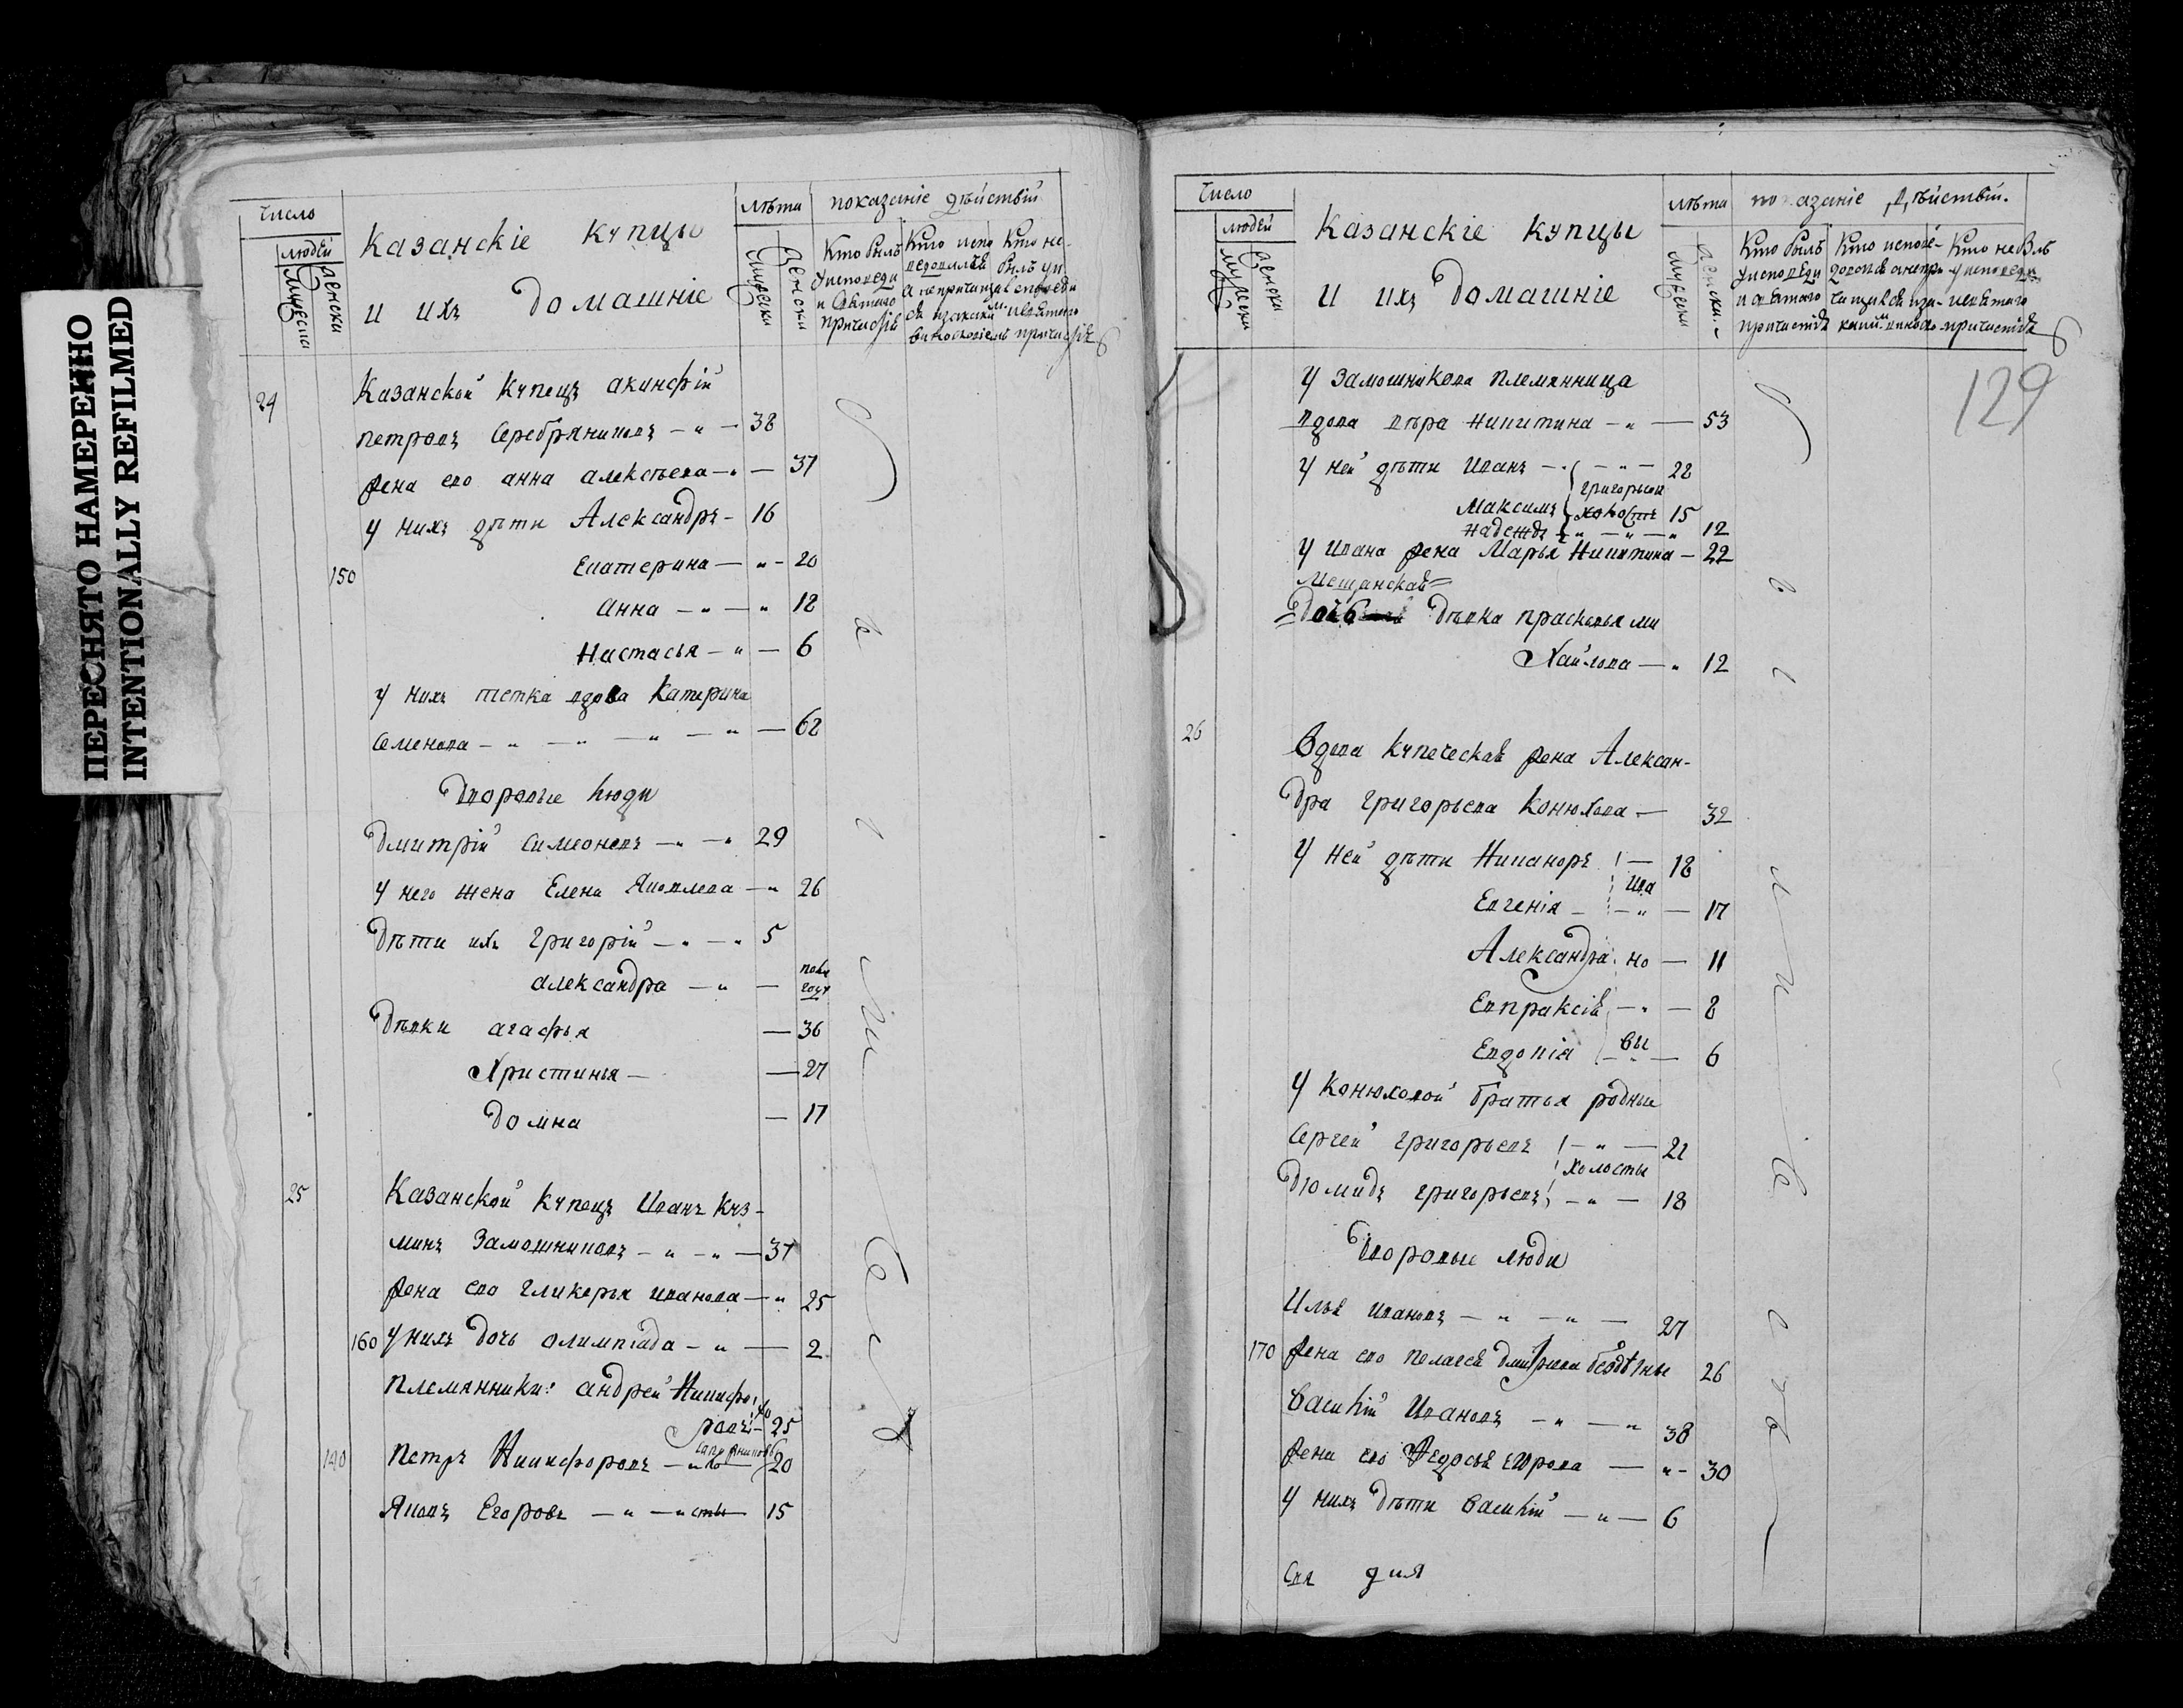 ПЕРЕСНЯТО НАМЕРЕННО
INTENTIONALLY REFILMED
число
людей
мужеска
женски
Казанскіе купцы
и ихъ домашніе
лѣта
мужески
женски
показаніе дѣйствій
Кто былъ у исповеди и святаго причастія
Кто исповедовался а непричащался
Кто не былъ у исповеди и святаго причастія
24
Казанской купецъ акинфій
петровъ Серебряниковъ — 38
жена его анна алексѣева — 37
у нихъ дѣти Александръ — 16
150
Екатерина — 20
анна — 12
Настасья — 6
у нихъ тетка вдова Катерина
Семенова — 62
Дворовые люди
Дмитрій Симеоновъ — 29
у него жена Елена Яковлева — 26
Дѣти ихъ Григорій — 5
александра — полу году
Дѣвки агафья — 36
Христинья — 27
Домна — 17
25
Казанской купецъ Иванъ Куз-
минъ Замошниковъ — 37
жена его гликерья иванова — 25
160 у нихъ дочь олимпіада — 2
племянники: андрей Никифо
ровъ — 25
140 петръ Никифоровъ — хо — 20
Яковъ Егоровъ — сты 15
число
людей
мужески
женски
Казанскіе купцы
и ихъ домашніе
лѣта
мужески
женски
показаніе дѣйствій.
Кто былъ у исповеди и святаго причастія
Кто исповедовался а непричащался
Кто не былъ у исповеди и святаго причастія
129
у Замошникова племянница
вдова вѣра никитина — 53
у ней дѣти Иванъ — 22
григорьевы
Максимъ холостъ 15
Надежда — 12
у Ивана жена Марья Никитина — 22
Мещанская
дѣвка прасковья ми
хайлова — 12
26
Вдова купеческая жена Алексан-
дра григорьева Конюхова — 32
у ней дѣти Никаноръ — 18
Ива
Евгенія — 17
Александра но — 11
Евпраксія — 8
Евдокія вы — 6
у Конюховой братья родные
Сергей григорьевъ — 21
холосты
Дюмидъ григорьевъ — 18
Дворовые люди
Илья ивановъ — 27
170 жена его пелагея дмитріева бездѣтны 26
Василій Ивановъ — 38
жена его Федосья егорова — 30
у нихъ дѣти василій — 6